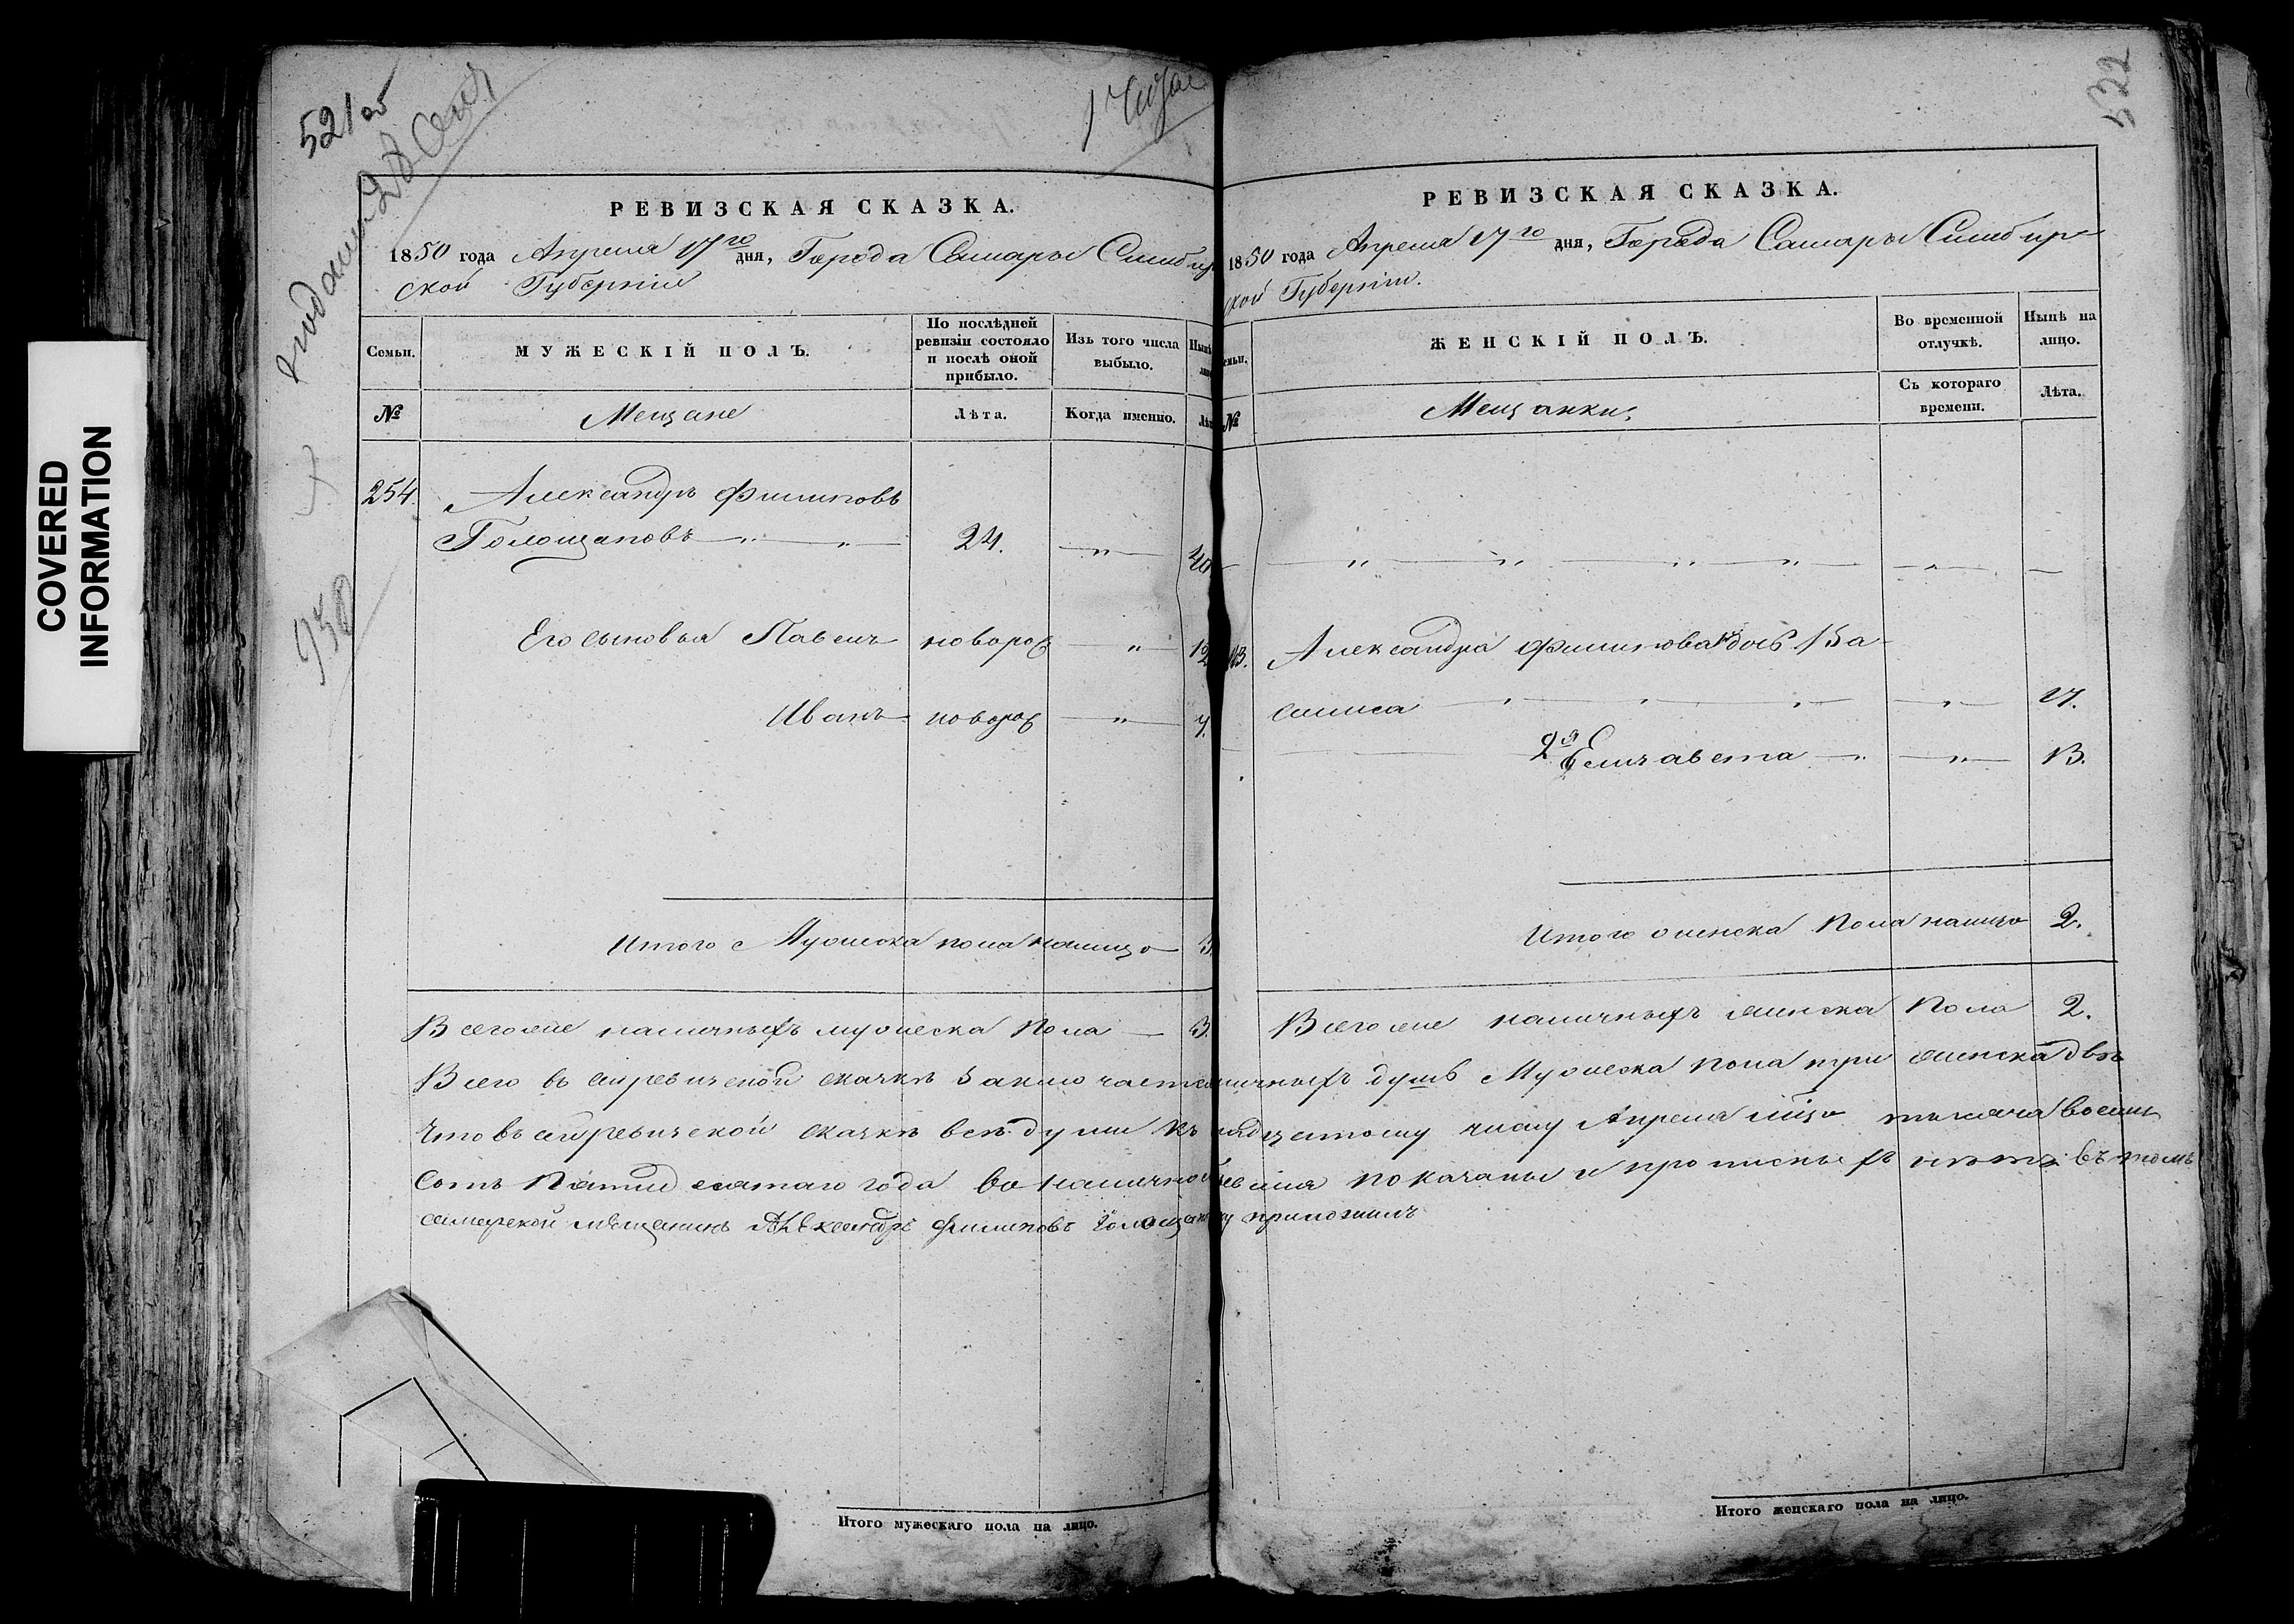 COVERED
INFORMATION
521 об
28
950
РЕВИЗСКАЯ СКАЗКА.
1850 года Апреля 17го дня, Города Самары Симбир
ской Губерніи
Семьи.
МУЖЕСКІЙ ПОЛЪ.
По послѣдней ревизіи состояло и послѣ оной прибыло.
Изъ того числа выбыло.
№
Мещане
Лѣта.
Когда именно.
254.
Александръ Филиповъ
Голощаповъ 24. 40
Его сыновья Павелъ новорож 12
Иванъ новорож 7.
Итого Мужеска пола налицо 3
Всего же наличныхъ мужеска пола 3.
522
РЕВИЗСКАЯ СКАЗКА.
1850 года Апреля 17го дня, Города Самары Симбир-
ской Губерніи.
ЖЕНСКІЙ ПОЛЪ.
Во временной отлучкѣ.
Нынѣ на лицо.
№
Мещанки
Съ котораго времени.
Лѣта.
Александра Филипова Ва-
силиса 17.
2я Елизавета 13.
Итого женска Пола налицо 2.
Всего же наличныхъ женска Пола 2.
Всего въ сей ревизской сказкѣ заключает наличныхъ душъ Мужеска пола три женска двѣ
Что въ сей ревизской сказкѣ всѣ души къ числу Апреля тысяча восемь
сотъ Пятидесятаго года во наличной показаны и прописныхъ нѣтъ въ томъ
самарской мещанинъ Александръ Филиповъ Голощапов руку приложилъ
Итого мужескаго пола на лицо.
Итого женскаго пола на лицо.